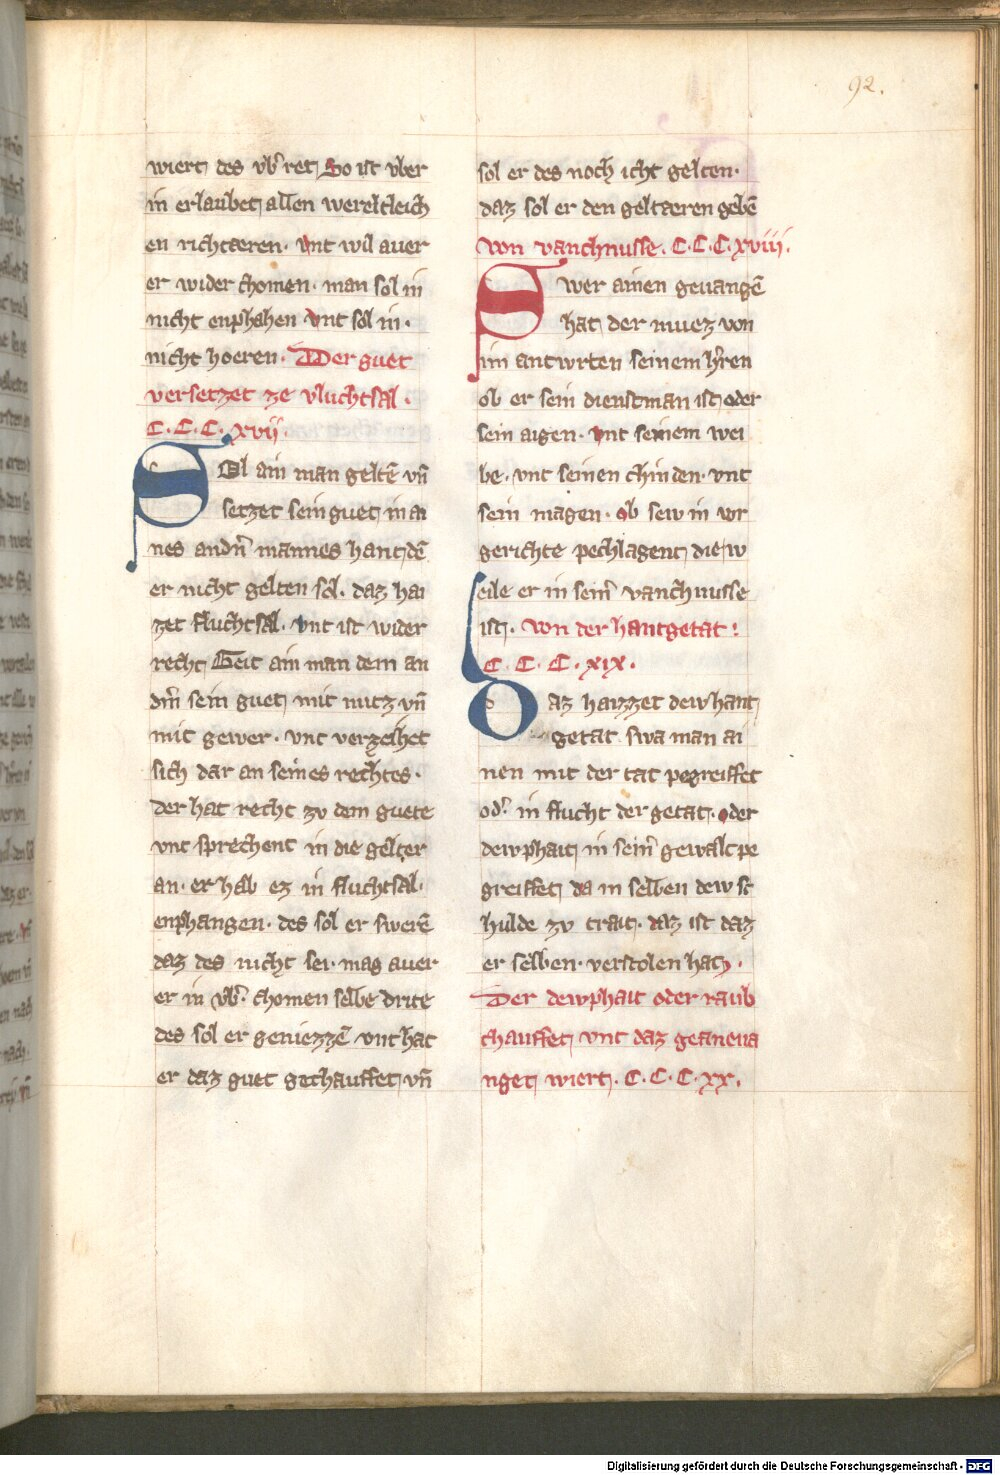 92.
wiert des vb̾ ret So ist vber
in erlaubet allen wereltleich
en richtæren. vnt wil auer
er wider chomen. man sol in
nicht enphahen vnt sol in.
nicht hoeren. Der guet
versetzet ze vluchtsal.
C. C. C. xvij.
SOl ain man geltē vn̄
setzet sein guet in ai
nes andn̄ mannes hant, dē
er nicht gelten sol. daz hai
zet fluchtsal. vnt ist wider
recht Geit ain man dem an
dm̄ sein guet mit nutz vn̄
mit gewer. vnt verzeihet
sich dar an seines rechtes.
der hat recht zv dem guete
vnt sprechent in die gelter
an. er hab ez in fluchtsal.
enphangen. des sol er swerē
daz des nicht sei. mag auer
er in vb̾. chomen selbe dritte
des sol er geniezzē vnt hat
er daz guet gechauffet vn̄
sol er des noch icht gelten.
daz sol er den geltæren gebē
Von vanchnusse. C. C. C. xviii.
Swer ainen geuangē
hat der muez von
im antwrten seinem h̾ren
ob er sein dienstman ist oder
sein aigen. vnt seinem wei
be. vnt seinen chinden. vnt
sein magen. ob sew in vor
gerichte pechlagent die w
eile er in seim̄ vanchnusse
ist. Von der hantgetat:
C. C. C. xix.
Daz haizzet dew hant
getat swa man ai
nen mit der tat pegreiffet
od̾ in flucht der getat. oder
dewphait in sein̄ gewalt pe
greiffet da in selben dew sc
hulde zv trait. daz ist daz
er selben verstolen hat.
Der dewphait oder raub
chauffet vnt daz gefaneua
nget wiert. C. C. C. xx.
Digitalisierung gefördert durch die Deutsche Forschungsgemeinschaft - DFG